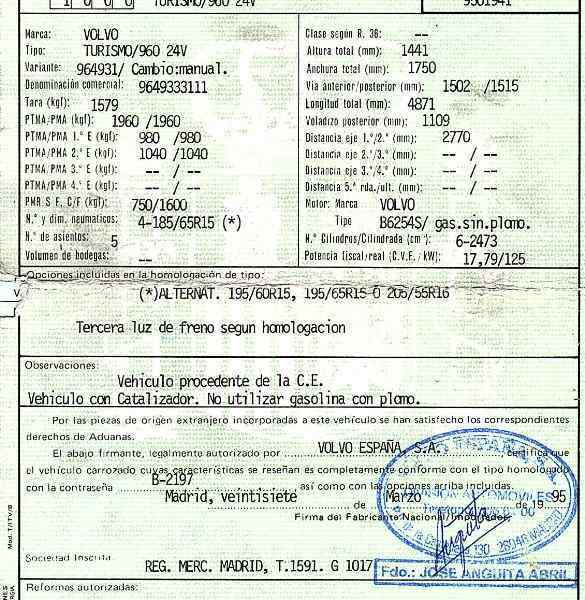 1 0 0 0 TURISMO/960 24V 9501941
Marca: VOLVO
Tipo: TURISMO/960 24V
Variante: 964931/ Cambio:manual.
Denominación comercial: 9649333111
Tara (kgf): 1579
PTMA/PMA (kgf): 1960 /1960
PTMA/PMA 1.° E (kgf): 980 /980
PTMA/PMA 2.° E (kgf): 1040 /1040
PTMA/PMA 3.° E (kgf): -- / --
PTMA/PMA 4.° E (kgf): -- / --
PMR S F, C/F (kgf): 750/1600
N.° y dim. neumaticos: 4-185/65R15 (*)
N.° de asientos: 5
Volumen de bodegas: --
Clase según R. 36: --
Altura total (mm): 1441
Anchura total (mm): 1750
Via anterior/posterior (mm): 1502 /1515
Longitud total (mm): 4871
Voladizo posterior (mm): 1109
Distancia eje 1.°/2.° (mm): 2770
Distancia eje 2.°/3.° (mm): -- / --
Distancia eje 3.°/4.° (mm): -- / --
Distancia 5.ª rda./ult. (mm): -- / --
Motor: Marca VOLVO
Tipo B6254S/ gas.sin.plomo.
N.° Cilindros/Cilindrada (cm³) 6-2473
Potencia fiscal/real (C.V.F./ kW): 17,79/125
Opciones incluidas en la homologación de tipo:
(*)ALTERNAT. 195/60R15, 195/65R15 O 205/55R16
Tercera luz de freno segun homologacion
Observaciones:
Vehiculo procedente de la C.E.
Vehiculo con Catalizador. No utilizar gasolina con plomo.
Por las piezas de origen extranjero incorporadas a este vehículo se han satisfecho los correspondientes
derechos de Aduanas.
El abajo firmante, legalmente autorizado por VOLVO ESPAÑA, S.A. certifica que
el vehículo carrozado cuyas características se reseñan es completamente conforme con el tipo homologado
con la contraseña B-2197 así como con las opciones arriba incluidas.
Madrid, veintisiete de Marzo de 19 95
Firma del Fabricante Nacional/Importador.
Sociedad Inscrita
REG. MERC. MADRID, T.1591. G 1017
Fdo.: JOSE ANGUITA ABRIL
Reformas autorizadas: